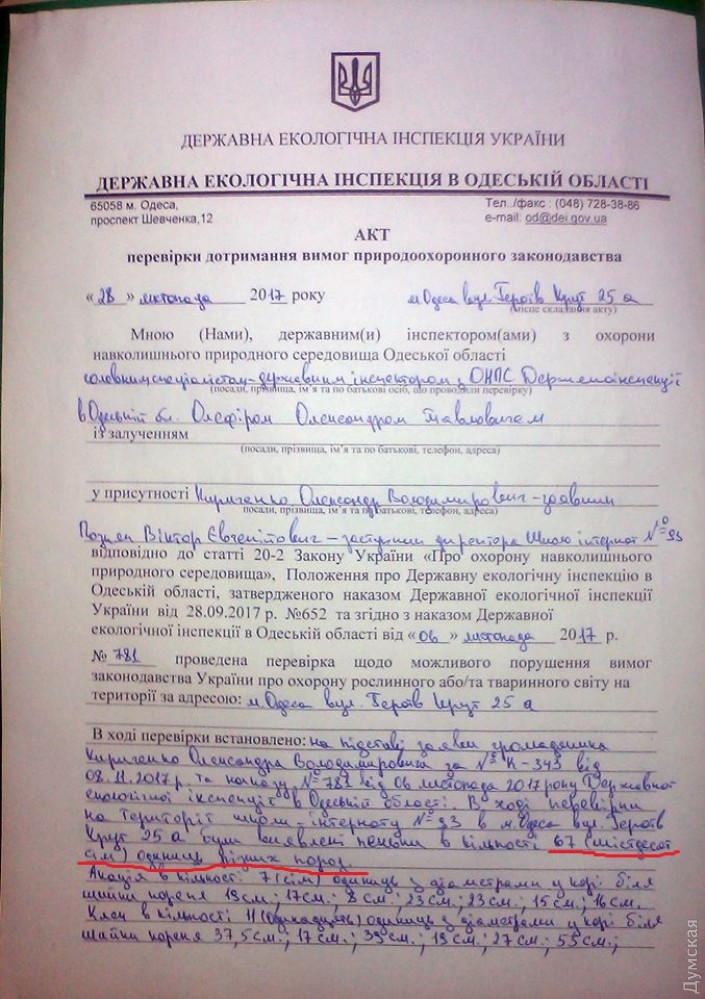 ДЕРЖАВНА ЕКОЛОГІЧНА ІНСПЕКЦІЯ УКРАЇНИ
ДЕРЖАВНА ЕКОЛОГІЧНА ІНСПЕКЦІЯ В ОДЕСЬКІЙ ОБЛАСТІ
65058 м. Одеса,
проспект Шевченка,12
Тел./факс : (048) 728-38-86
e-mail: od@dei.gov.ua
АКТ
перевірки дотримання вимог природоохоронного законодавства
«28» листопада 2017 року м.Одеса вул.Героїв Крут 25 а
(місце складання акту)
Мною (Нами), державним(и) інспектором(ами) з охорони
навколишнього природного середовища Одеської області
головним спеціалістом-державним інспектором з ОНПС Держекоінспекції
(посади, прізвища, ім'я та по батькові осіб, що проводили перевірку)
в Одеській обл. Олефіром Олександром Павловичем
із залученням
(посади, прізвища, ім'я та по батькові, телефон, адреса)
у присутності Кириченко Олександр Володимирович - заявник
(посади, прізвища, ім'я та по батькові, телефон, адреса)
Віктор Євгенійович - заступник директора Школи інтернат №93
відповідно до статті 20-2 Закону України «Про охорону навколишнього
природного середовища», Положення про Державну екологічну інспекцію в
Одеській області, затвердженого наказом Державної екологічної інспекції
України від 28.09.2017 р. №652 та згідно з наказом Державної
екологічної інспекції в Одеській області від «06» листопада 2017 р.
№ 781 проведена перевірка щодо можливого порушення вимог
законодавства України про охорону рослинного або/та тваринного світу на
території за адресою: м.Одеса вул. Героїв Крут 25 а
В ході перевірки встановлено: на підставі заяви громадянина
Кириченко Олександра Володимировича за № К-343 від
08.11.2017 р. та наказу №781 від 06 листопада 2017 року Державної
екологічної інспекції в Одеській області. В ході перевірки
на території школи-інтернату №93 в м.Одеса вул. Героїв
Крут 25 а були виявлені пеньки в кількості 67 (шістдесят
сім) одиниць різних пород.
Акація в кількості 7 (сім) одиниць з діаметрами у корі біля
шийки кореня 19 см.; 17 см.; 8 см.; 23 см.; 23 см.; 15 см.; 16 см.
Клен в кількості 11 (одинадцять) одиниць з діаметрами у корі біля
шийки кореня 37,5 см.; 17 см.; 39 см.; 19 см.; 27 см.; 55 см.;
Думская